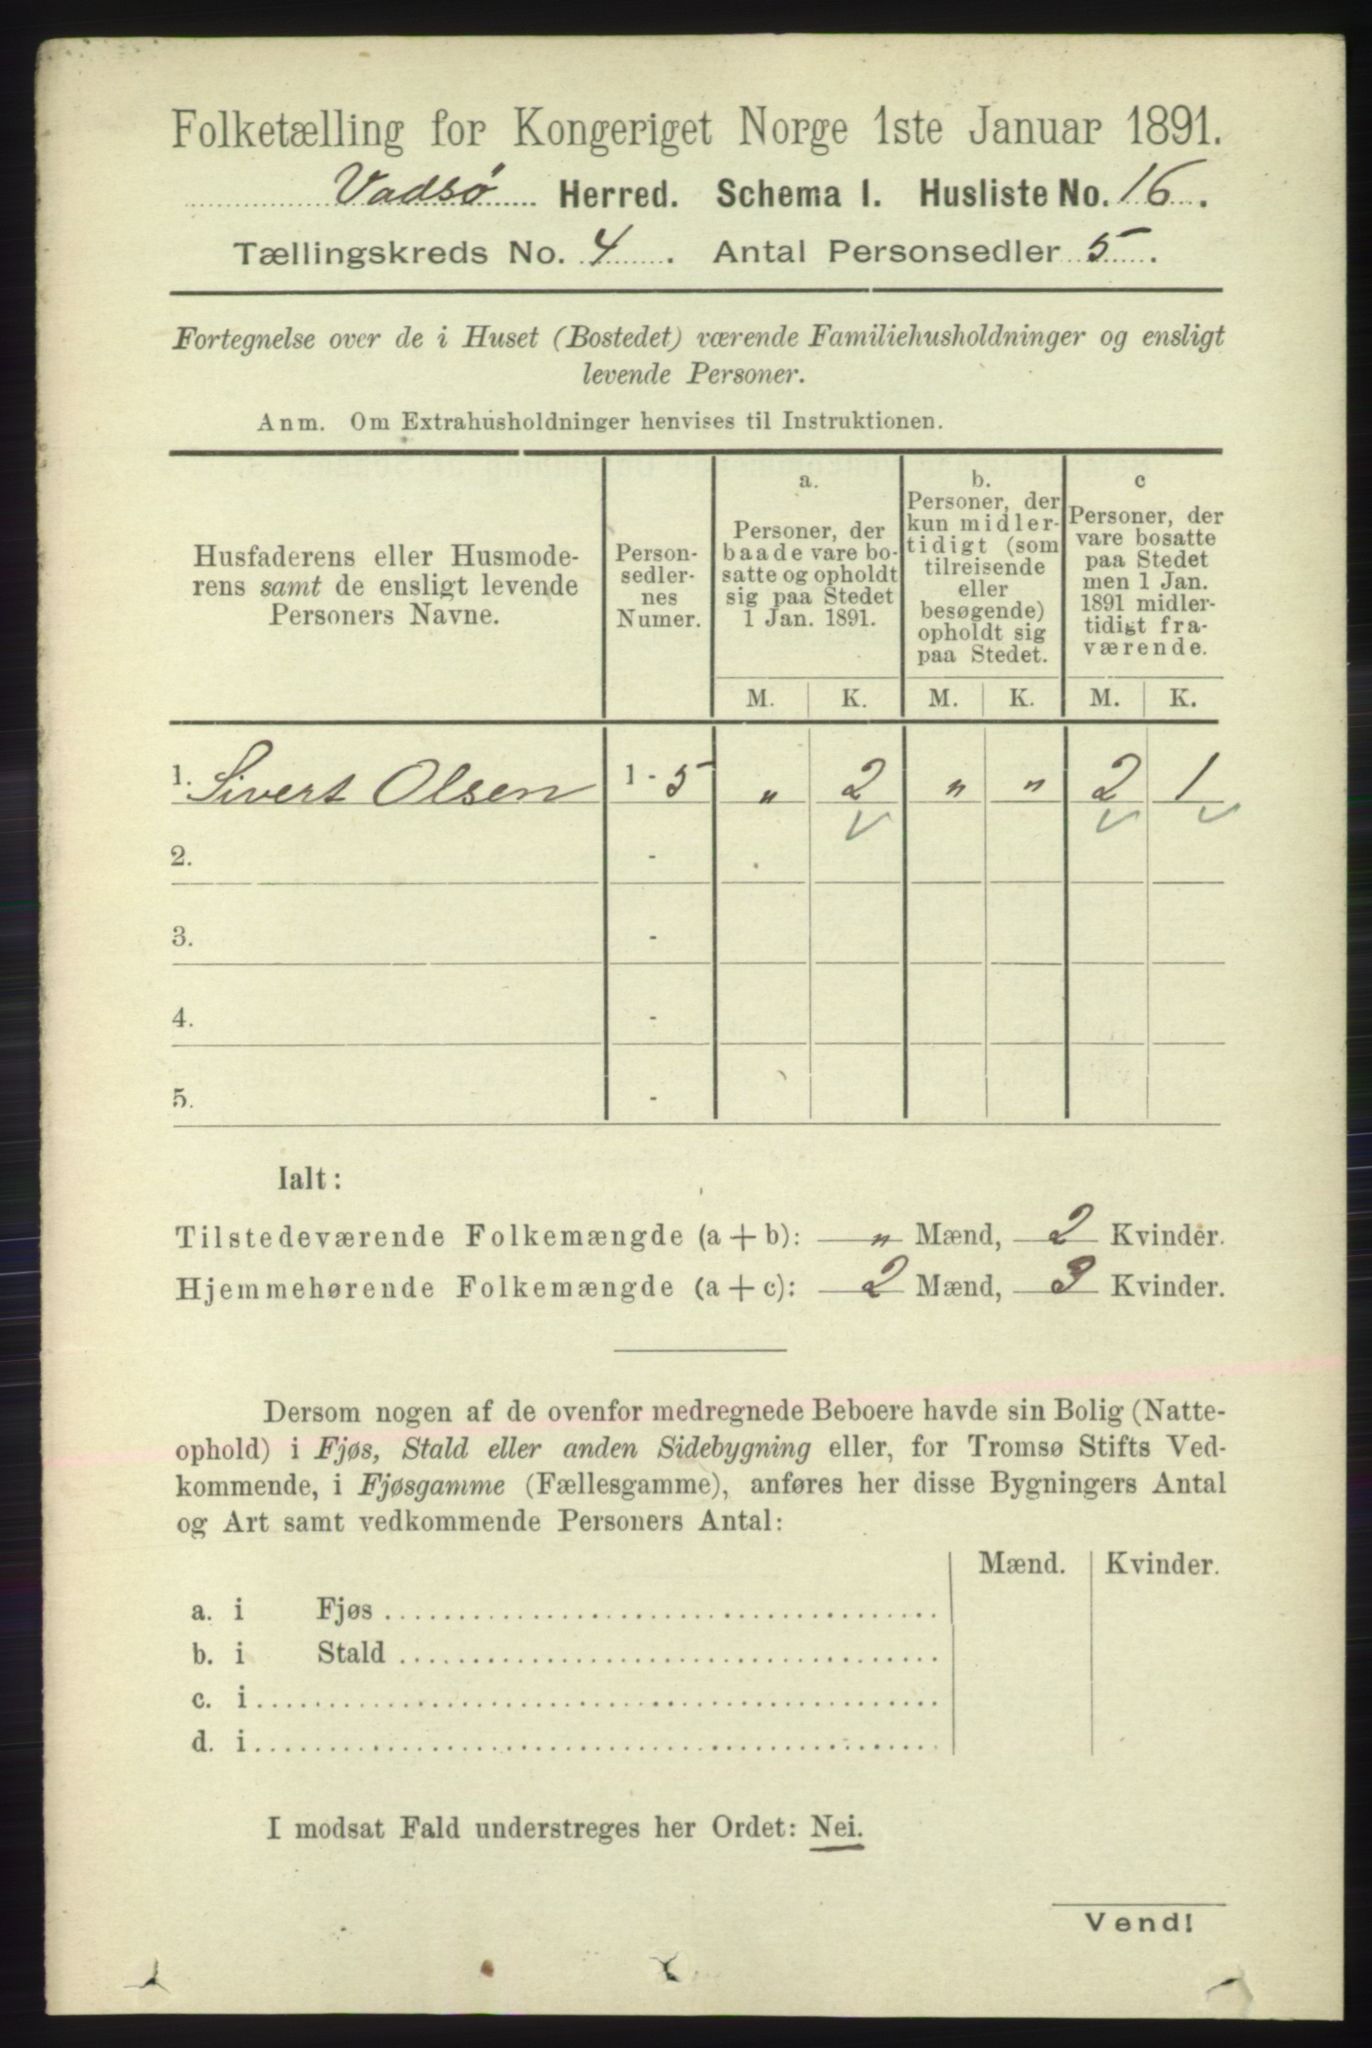 Folketælling for Kongeriget Norge 1ste Januar 1891.
Vadsø Herred. Schema I. Husliste No. 16.
Tællingskreds No. 4. Antal Personsedler 5.
Fortegnelse over de i Huset (Bostedet) værende Familiehusholdninger og ensligt
levende Personer.
Anm. Om Extrahusholdninger henvises til Instruktionen.
Husfaderens eller Husmode-
rens samt de ensligt levende
Personers Navne.
Person-
sedler-
nes
Numer.
a.
Personer, der
baade vare bo-
satte og opholdt
sig paa Stedet
1 Jan. 1891.
b.
Personer, der
kun midler-
tidigt (som
tilreisende
eller
besøgende)
opholdt sig
paa Stedet.
c
Personer, der
vare bosatte
paa Stedet
men 1 Jan.
1891 midler-
tidigt fra-
værende.
M. K. M. K. M. K.
1. Sivert Olsen 1 - 5 „ 2 „ „ 2 1
2. -
3. -
4. -
5. -
Ialt:
Tilstedeværende Folkemængde (a + b): „ Mænd, 2 Kvinder.
Hjemmehørende Folkemængde (a + c): 2 Mænd, 3 Kvinder.
Dersom nogen af de ovenfor medregnede Beboere havde sin Bolig (Natte-
ophold) i Fjøs, Stald eller anden Sidebygning eller, for Tromsø Stifts Ved-
kommende, i Fjøsgamme (Fællesgamme), anføres her disse Bygningers Antal
og Art samt vedkommende Personers Antal:
Mænd. Kvinder.
a. i Fjøs
b. i Stald
c. i
d. i
I modsat Fald understreges her Ordet: Nei.
Vend!